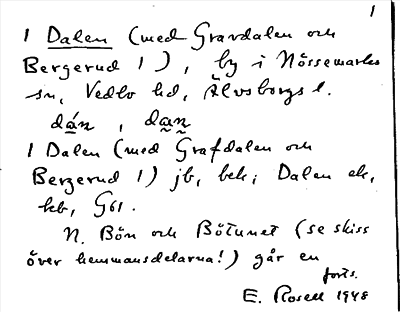 1
1 Dalen (med Gravdalen och
Bergerud 1), by i Nössemarks
sn, Vedbo hd, Älvsborgs l.
dán, dan
1 Dalen (med Grafdalen och
Bergerud 1) jb, beb; Dalen ek,
kb, G61.
N. Bön och Bötunet (se skiss
över hemmansdelarna!) går en
forts.
E. Rosell 1948